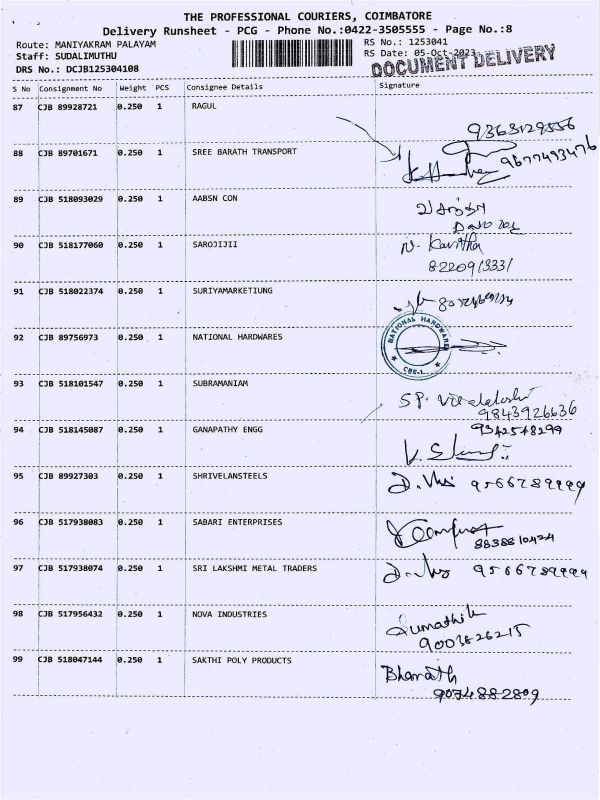 THE PROFESSIONAL COURIERS, COIMBATORE
Delivery Runsheet - PCG - Phone No.:0422-3505555 - Page No.:8
Route: MANIYAKRAM PALAYAM
RS No.: 1253041
Staff: SUDALIMUTHU
RS Date: 05-Oct-2023
DRS No.: DCJB125304108
DOCUMENT DELIVERY
S No Consignment No Weight PCS Consignee Details Signature
87 CJB 89928721 0.250 1 RAGUL
88 CJB 89701671 0.250 1 SREE BARATH TRANSPORT 9677493476
89 CJB 518093029 0.250 1 AABSN CON
90 CJB 518177060 0.250 1 SAROJIJII N. Kavitha
8220913331
91 CJB 518022374 0.250 1 SURIYAMARKETIUNG
92 CJB 89756973 0.250 1 NATIONAL HARDWARES NATIONAL HARDWARE
CBE-1.
93 CJB 518101547 0.250 1 SUBRAMANIAM SP.
9843926636
94 CJB 518145087 0.250 1 GANAPATHY ENGG 9342548299
95 CJB 89927303 0.250 1 SHRIVELANSTEELS 9566789999
96 CJB 517938083 0.250 1 SABARI ENTERPRISES
8838810424
97 CJB 517938074 0.250 1 SRI LAKSHMI METAL TRADERS 9566789999
98 CJB 517956432 0.250 1 NOVA INDUSTRIES Sumathi k
9003826215
99 CJB 518047144 0.250 1 SAKTHI POLY PRODUCTS Bharath
9074882809